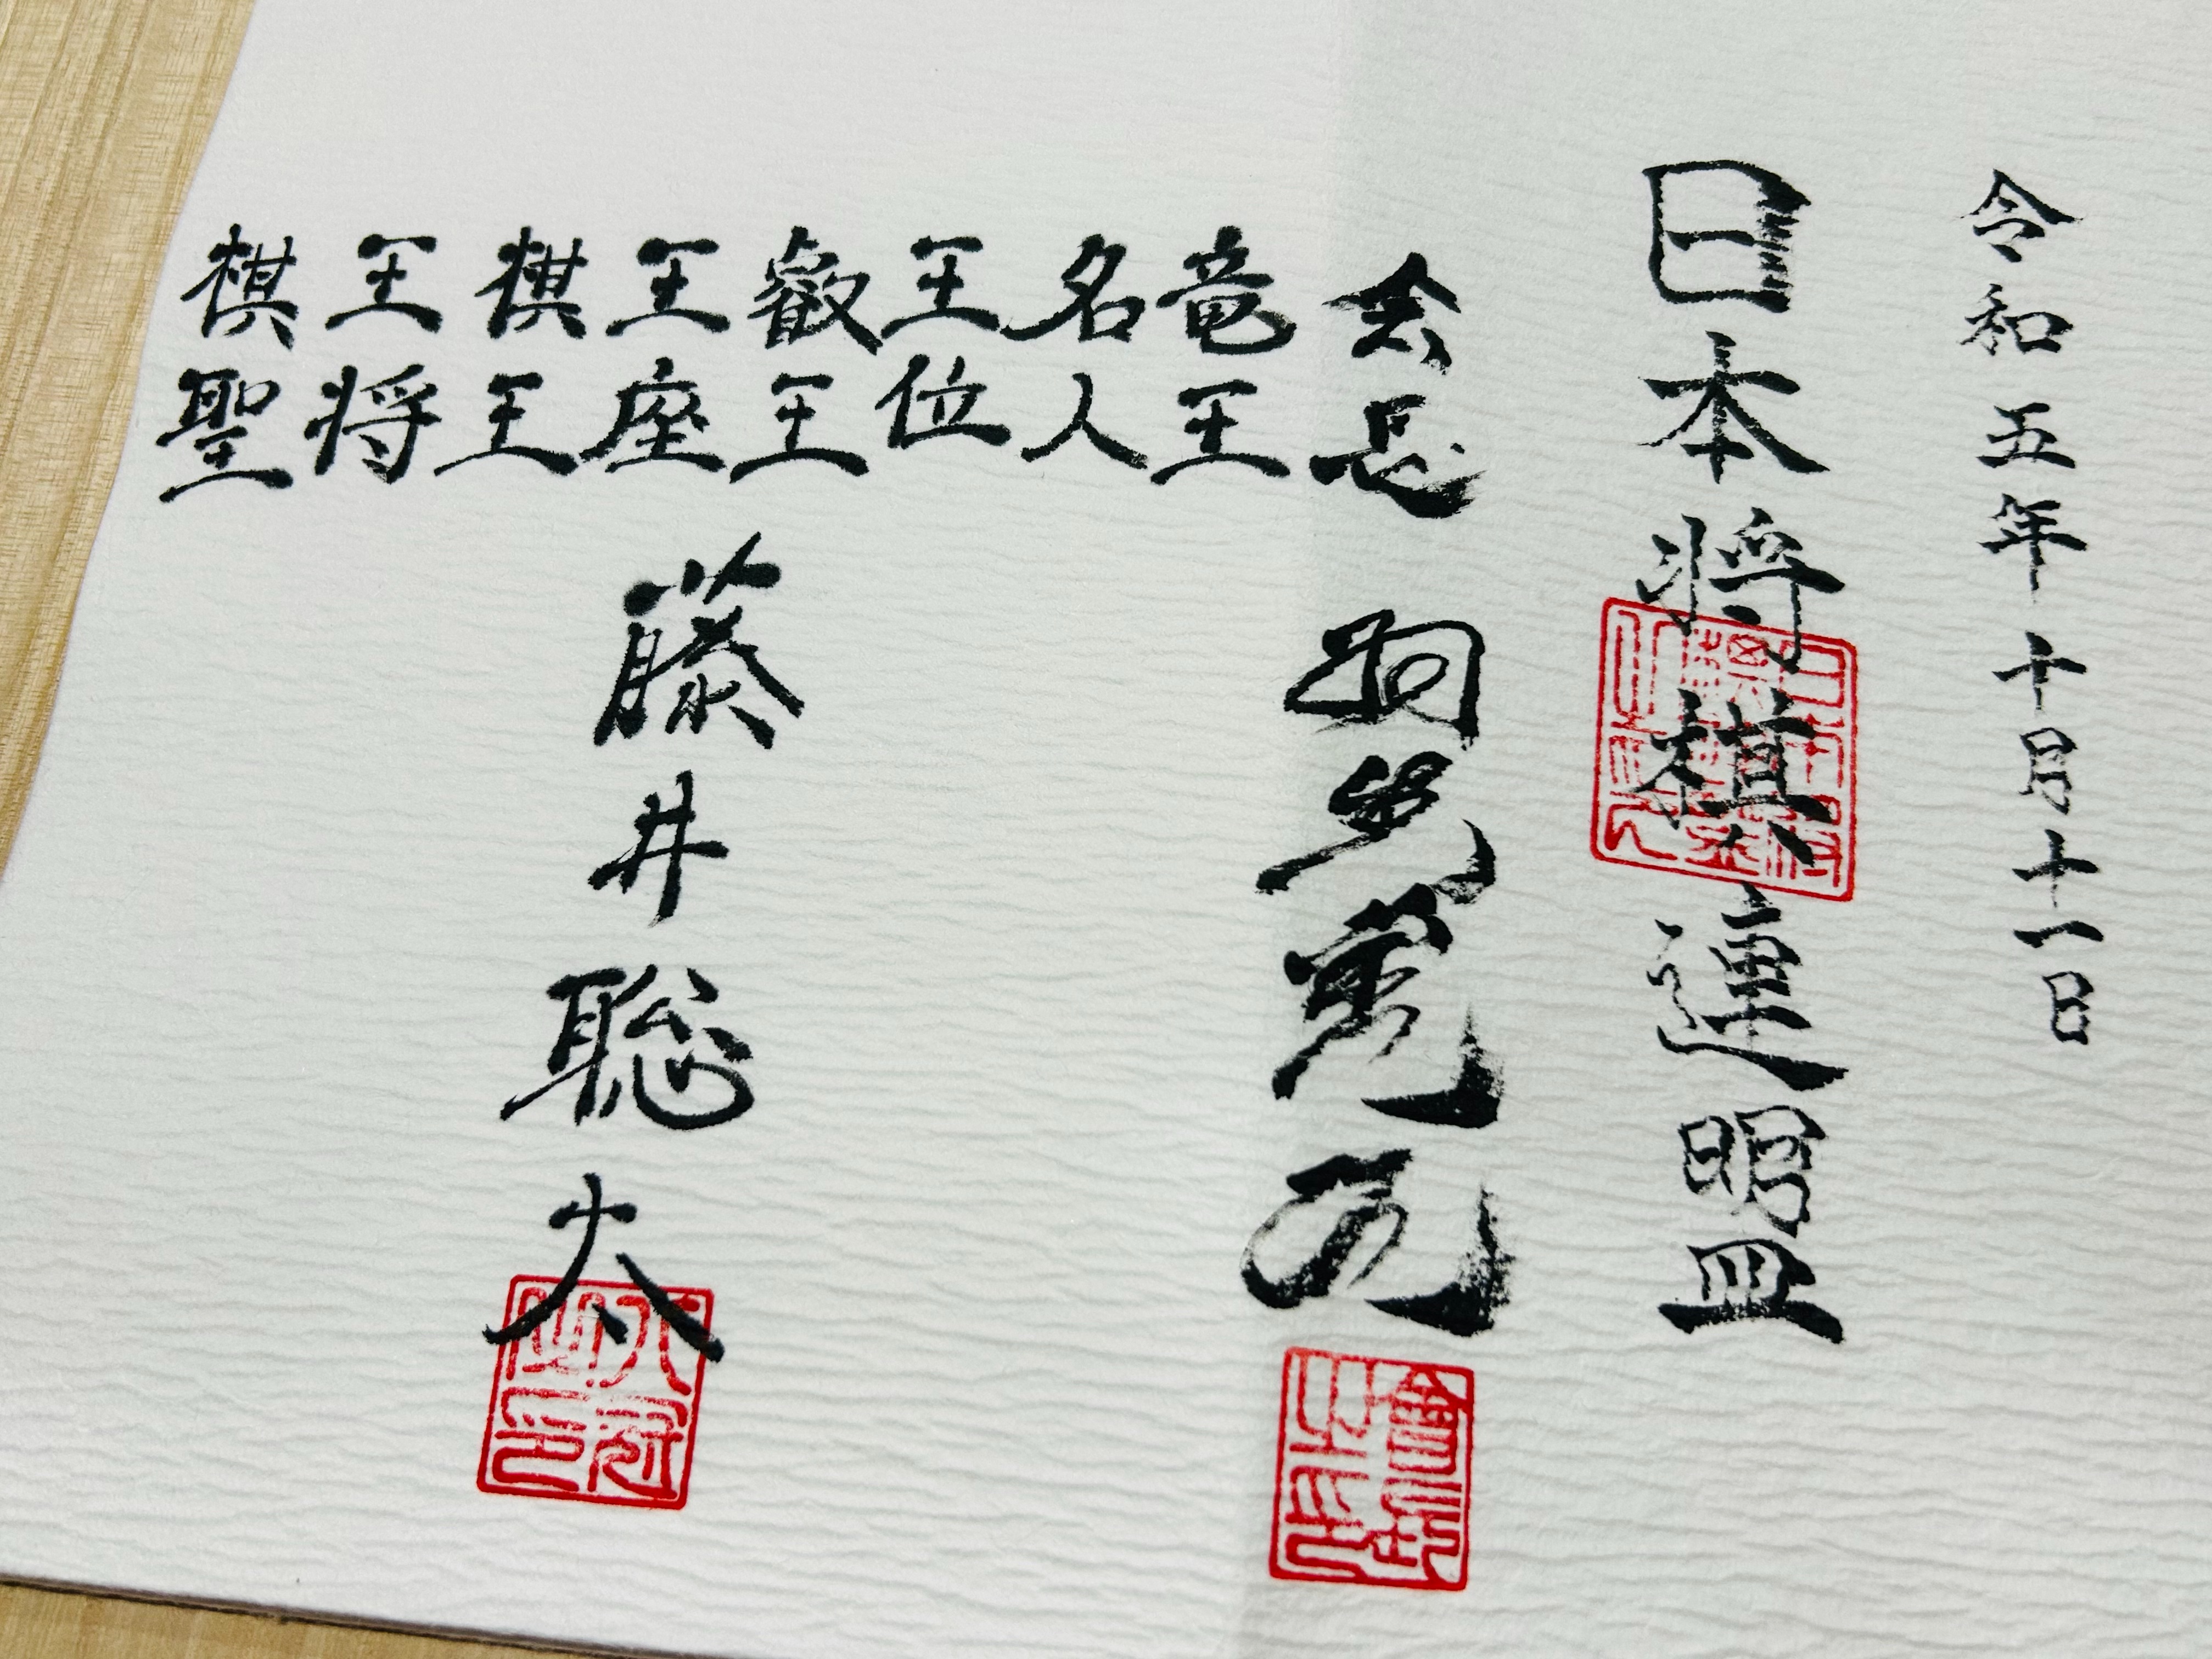 令和五年十月十一日
日本将棋連盟
会長 羽生善治
竜王
名人
王位
叡王
王座
棋王
王将
棋聖
藤井聡太